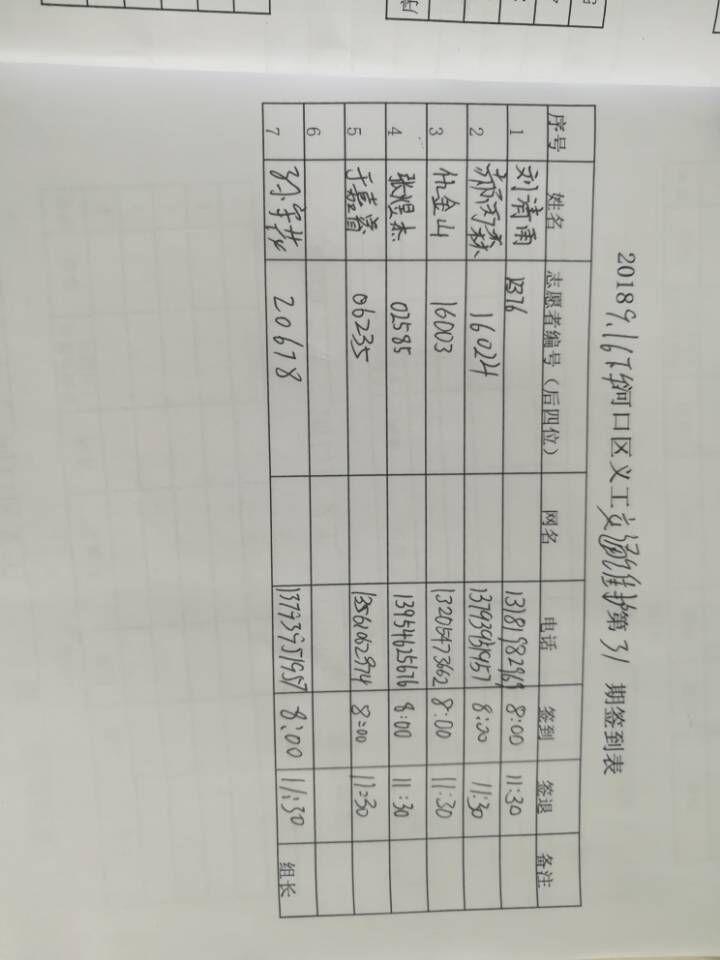 2018 9.16 河口区义工交通维护第31期签到表
序号 姓名 志愿者编号（后四位） 网名 电话 签到 签退 备注
1 刘清雨 1376 13181982969 8:00 11:30
2 16024 13793951957 8:00 11:30
3 仇金山 16003 13205473662 8:00 11:30
4 张煜杰 02585 13954625676 8:00 11:30
5 于嘉 06235 13561062974 8:00 11:30
6
7 20678 13793951957 8:00 11:30 组长